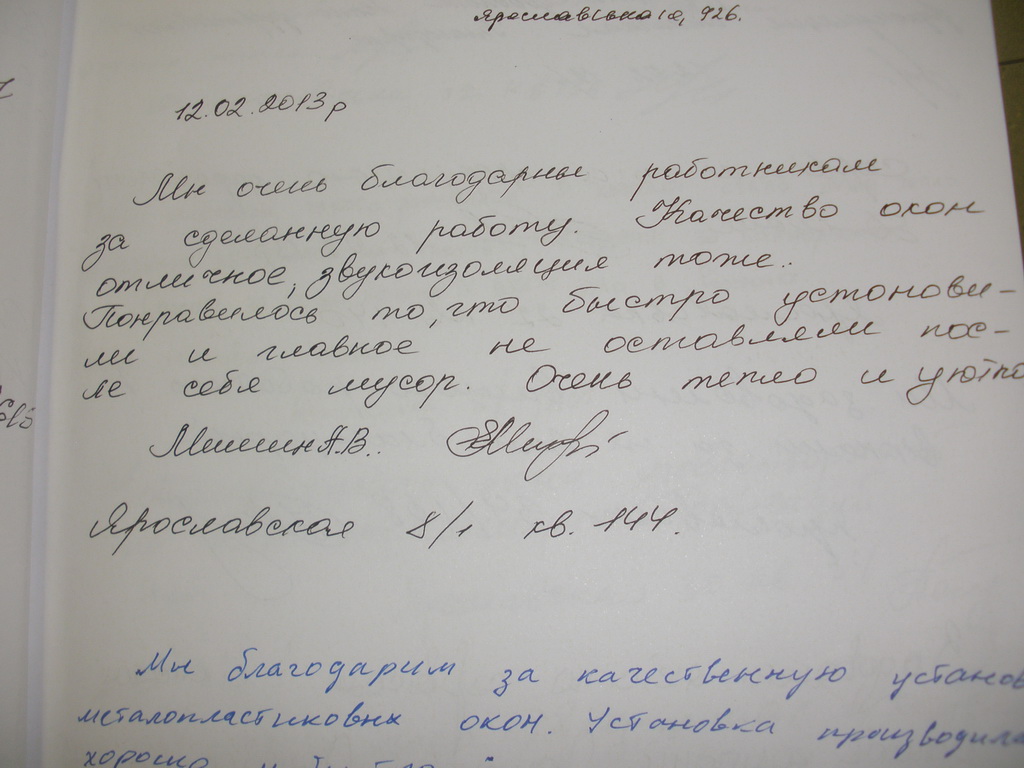 12.02.2013р
Мы очень благодарны работникам
за сделанную работу. Качество окон
отличное, звукоизоляция тоже.
Понравилось то, что быстро установи-
ли и главное не оставляли пос-
ле себя мусор. Очень тепло и уютно
Мишин А.В.
Ярославская 8/1 кв. 144.
Мы благодарим за качественную установ
металопластиковых окон. Установка производила
хорошо